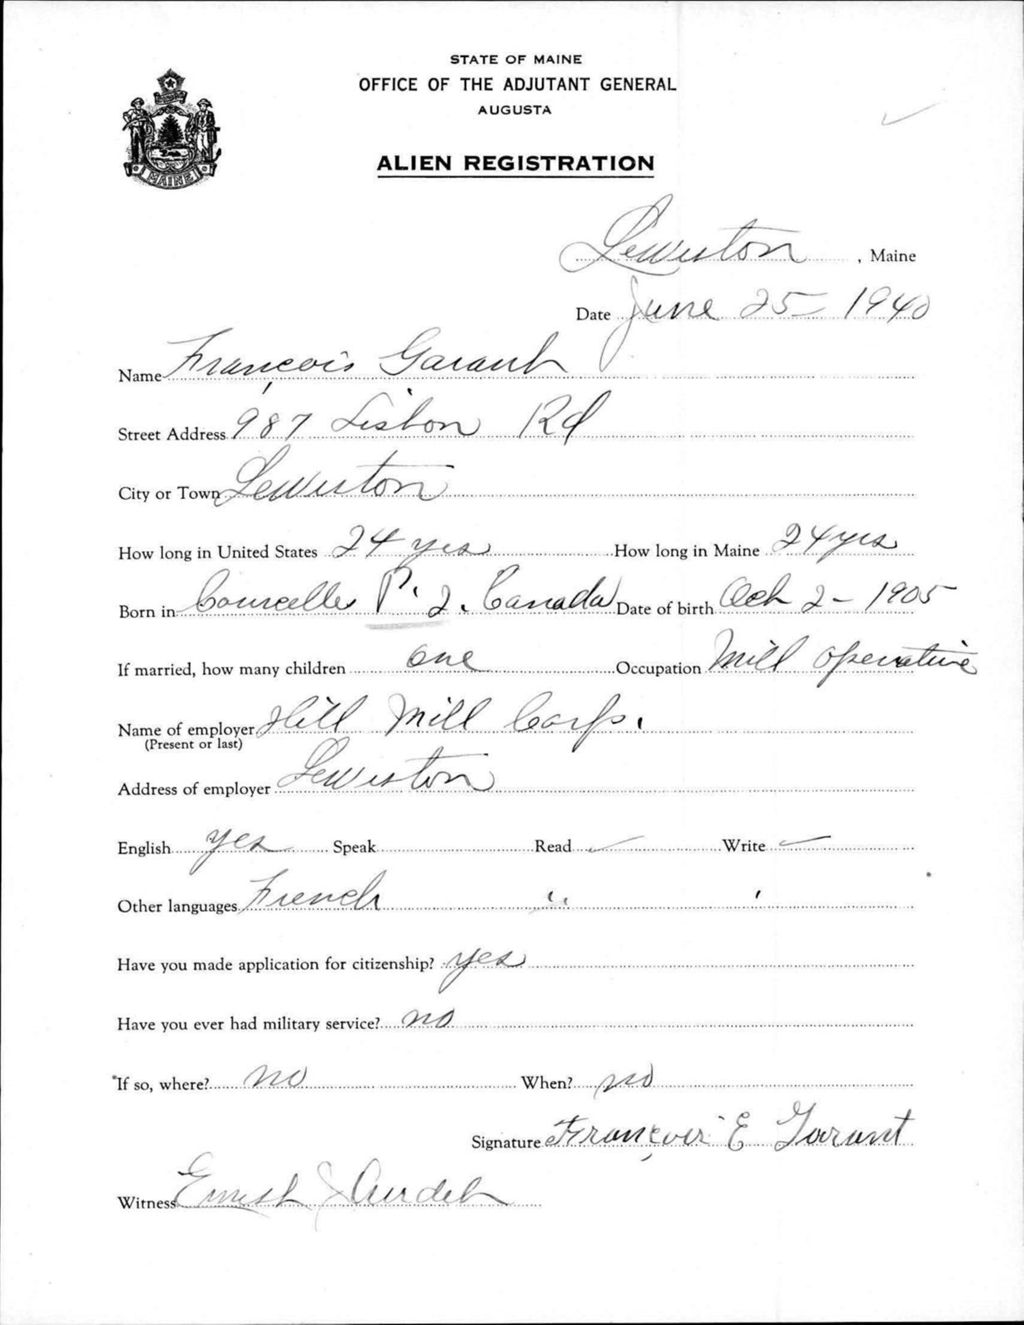 STATE OF MAINE
OFFICE OF THE ADJUTANT GENERAL
AUGUSTA
ALIEN REGISTRATION
MAINE
Lewiston, Maine
Date June 25 - 1940
Name François Garant
Street Address 987 Lisbon Rd
City or Town Lewiston
How long in United States 24 yrs How long in Maine 24 yrs
Born in Courcelles P. Q. Canada Date of birth Oct 2 - 1905
If married, how many children one Occupation Mill operative
Name of employer Hill Mill Corp.
(Present or last)
Address of employer Lewiston
English yes Speak Read ✓ Write ✓
Other languages French " "
Have you made application for citizenship? yes
Have you ever had military service? no
If so, where? no When? no
Signature François E Garant
Witness Ernest J Audet